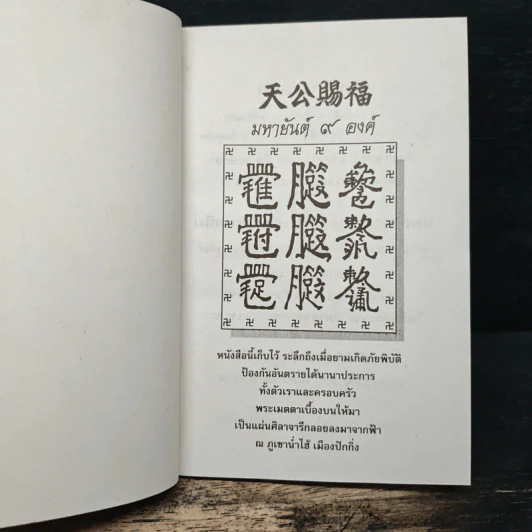 天公賜福
มหายันต์ ๙ องค์
卍 卍 卍 卍 卍 卍 卍 卍
卍 卍 卍 卍 卍 卍 卍 卍
หนังสือนี้เก็บไว้ ระลึกถึงเมื่อยามเกิดภัยพิบัติ
ป้องกันอันตรายได้นานาประการ
ทั้งตัวเราและครอบครัว
พระเมตตาเบื้องบนให้มา
เป็นแผ่นศิลาจารึกลอยลงมาจากฟ้า
ณ ภูเขาน่ำไฮ้ เมืองปักกิ่ง